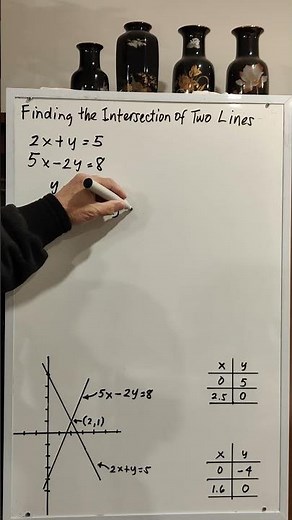 Finding the Intersection of Two Lines
2x+y=5
5x-2y=8
y
5x-2y=8
(2,1)
2x+y=5
x y
0 5
2.5 0
x y
0 -4
1.6 0